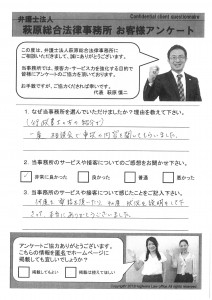 Confidential client questionnaire
弁護士法人
萩原総合法律事務所 お客様アンケート
この度は、弁護士法人萩原総合法律事務所に
ご相談いただきまして、誠にありがとうございます。
当事務所では、接客力・サービス力を強化する目的で
皆様にアンケートのご協力を頂いております。
お手数ですが、ご協力くだされば幸いです。
代表 萩原 慎二
1. なぜ当事務所を選んでいただけましたか?理由を教えて下さい。
一番 相談後に事故の内容を聞いてもらいました。
2. 当事務所のサービスや接客についてのご感想をお聞かせ下さい。
非常に良かった 良かった 普通 悪かった
3. 当事務所のサービスや接客について感じたことをご記入下さい。
何度も電話を頂いたり
本当にありがとうございました。
アンケートご協力ありがとうございます。
こちらの情報を匿名でホームページに
掲載しても宜しいでしょうか?
掲載してもよい 掲載は控えてほしい